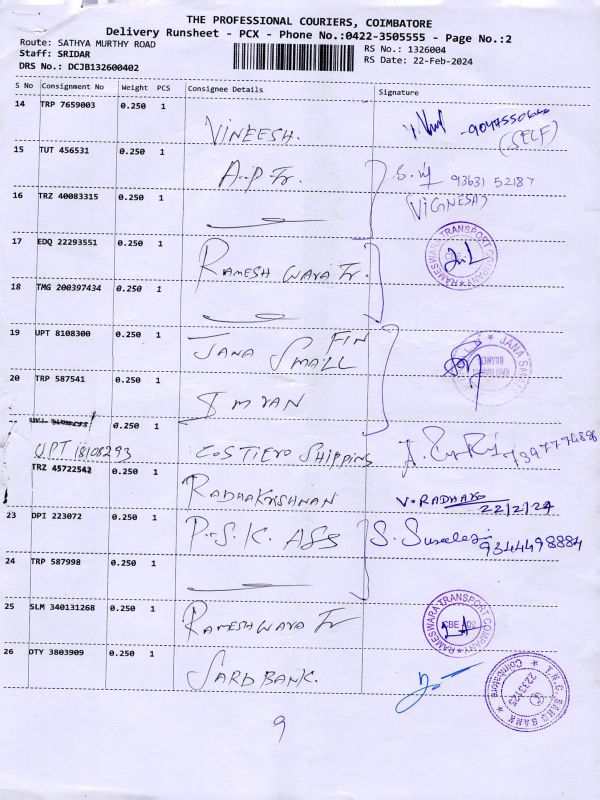 THE PROFESSIONAL COURIERS, COIMBATORE
Delivery Runsheet - PCX - Phone No.:0422-3505555 - Page No.:2
Route: SATHYA MURTHY ROAD RS No.: 1326004
Staff: SRIDAR RS Date: 22-Feb-2024
DRS No.: DCJB132600402
S No Consignment No Weight PCS Consignee Details Signature
14 TRP 7659003 0.250 1
VINEESH.
(SELF)
15 TUT 456531 0.250 1
A.P Tr. 93631 52187
(VIGNESH)
16 TRZ 40083315 0.250 1
17 EDQ 22293551 0.250 1
RAMESH WARA Tr. RAMESWARA TRANSPORT COMPANY
18 TMG 200397434 0.250 1
19 UPT 8108300 0.250 1
JANA SMALL FIN
20 TRP 587541 0.250 1
IMRAN
0.250 1
UPT 18108293 COSTIERO SHIPPING
TRZ 45722542 0.250 1
RADHAKRISHNAN V. RADHAKR
22/2/24
23 DPI 223072 0.250 1
P.S.K. ASS 9344498884
24 TRP 587998 0.250 1
25 SLM 340131268 0.250 1
RAMESHWARA Tr RAMESWARA TRANSPORT COMPANY
26 OTY 3803909 0.250 1
SARD BANK.
9